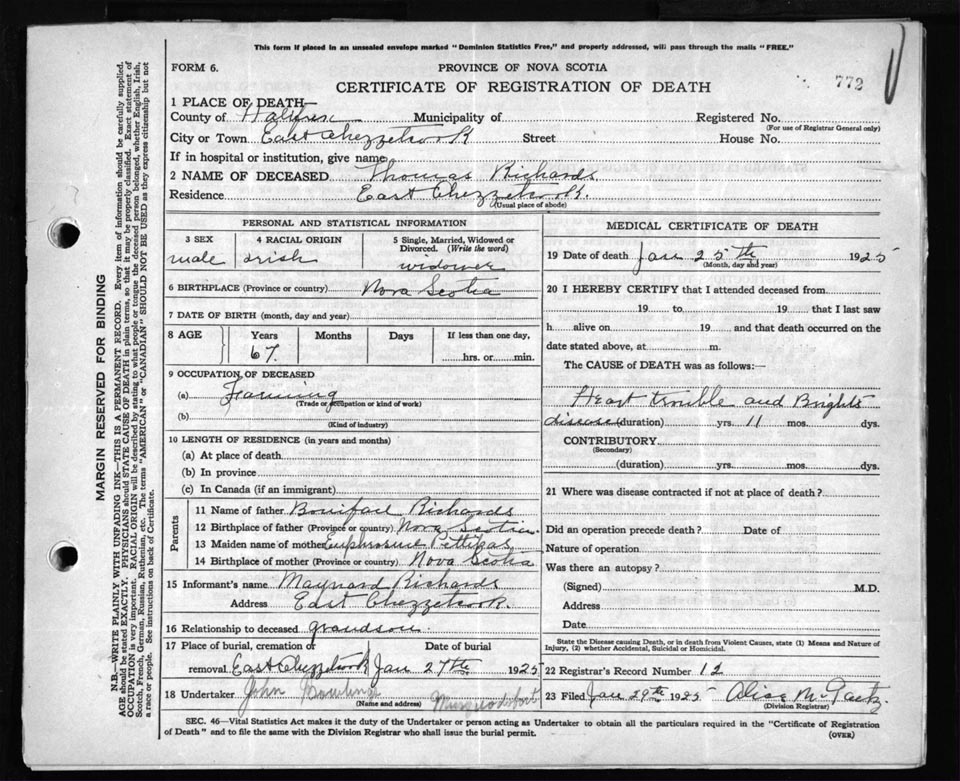 This form if placed in an unsealed envelope marked "Dominion Statistics Free," and properly addressed, will pass through the mails "FREE."
FORM 6.
PROVINCE OF NOVA SCOTIA
772
CERTIFICATE OF REGISTRATION OF DEATH
1 PLACE OF DEATH—
County of Halifax Municipality of Registered No.
(For use of Registrar General only)
City or Town East Chezzetcook Street House No.
If in hospital or institution, give name
2 NAME OF DECEASED Thomas Richards
Residence East Chezzetcook.
(Usual place of abode)
PERSONAL AND STATISTICAL INFORMATION
3 SEX 4 RACIAL ORIGIN 5 Single, Married, Widowed or Divorced. (Write the word)
male irish widower
6 BIRTHPLACE (Province or country) Nova Scotia
7 DATE OF BIRTH (month, day and year)
8 AGE Years Months Days If less than one day,
67. hrs. or min.
9 OCCUPATION OF DECEASED
(a) Farming
(Trade or occupation or kind of work)
(b)
(Kind of industry)
10 LENGTH OF RESIDENCE (in years and months)
(a) At place of death
(b) In province
(c) In Canada (if an immigrant)
Parents
11 Name of father Boniface Richards
12 Birthplace of father (Province or country) Nova Scotia.
13 Maiden name of mother Euphrosine Pettipas
14 Birthplace of mother (Province or country) Nova Scotia
15 Informant's name Maynard Richards
Address East Chezzetcook.
16 Relationship to deceased grandson.
17 Place of burial, cremation or Date of burial
removal East Chezzetcook Jan 27th 1925
18 Undertaker John
(Name and address) Musquodoboit
MEDICAL CERTIFICATE OF DEATH
19 Date of death Jan 25th 1925
(Month, day and year)
20 I HEREBY CERTIFY that I attended deceased from
19 to 19 that I last saw
h alive on 19 and that death occurred on the
date stated above, at m.
The CAUSE of DEATH was as follows:—
Heart trouble and Brights
disease (duration) yrs. 11 mos. dys.
CONTRIBUTORY
(Secondary)
(duration) yrs. mos. dys.
21 Where was disease contracted if not at place of death?
Did an operation precede death? Date of
Nature of operation
Was there an autopsy?
(Signed) M.D.
Address
Date
State the Disease causing Death, or in death from Violent Causes, state (1) Means and Nature of
Injury, (2) whether Accidental, Suicidal or Homicidal.
22 Registrar's Record No. 12
23 Filed Jan 29th 1925 Alice M. Gaetz.
(Division Registrar)
SEC. 46—Vital Statistics Act makes it the duty of the Undertaker or person acting as Undertaker to obtain all the particulars required in the "Certificate of Registration
of Death" and to file the same with the Division Registrar who shall issue the burial permit.
(OVER)
MARGIN RESERVED FOR BINDING
N.B.—WRITE PLAINLY WITH UNFADING INK—THIS IS A PERMANENT RECORD. Every item of information should be carefully supplied.
AGE should be stated EXACTLY. PHYSICIANS should STATE CAUSE OF DEATH in plain terms, so that it may be properly classified. Exact statement of
OCCUPATION is very important. RACIAL ORIGIN will be described by stating to what people or tongue the deceased person belonged, whether English, Irish,
Scotch, French, German, Russian, Ruthenian, etc. The terms "AMERICAN" or "CANADIAN" SHOULD NOT BE USED as they express citizenship but not
a race or people. See instructions on back of Certificate.